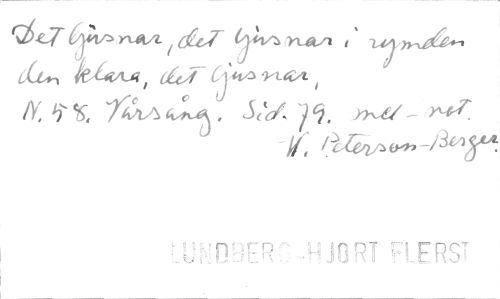 Det ljusnar, det ljusnar i rymden
den klara, det ljusnar,
N. 58. Vårsång. Sid. 79. mel-not.
W. Peterson-Berger.
LUNDBERG-HJORT FLERST